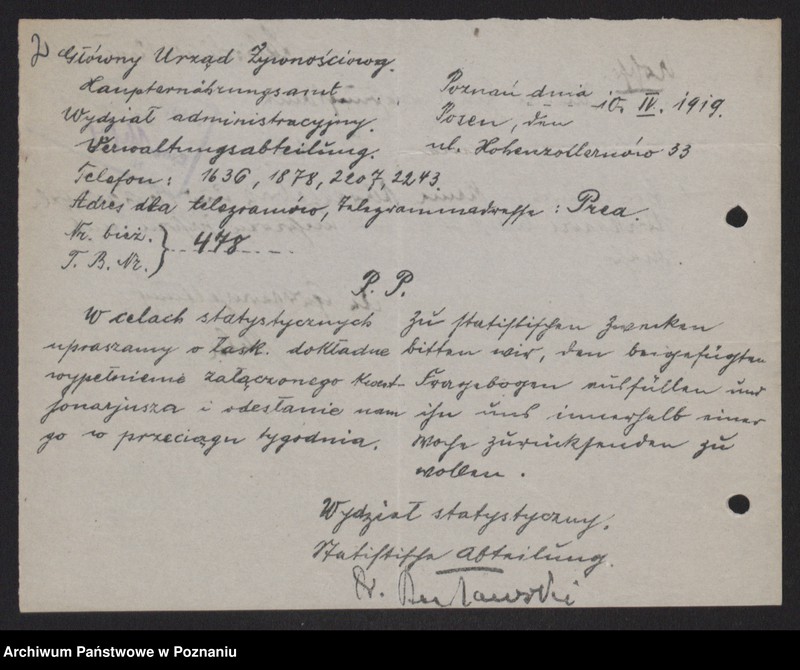 2
Główny Urząd Żywnościowy.
Haupternährungsamt
Wydział administracyjny.
Verwaltungsabteilung.
Poznań dnia
Posen, den
10. IV. 1919.
ul. Hohenzollernów 33
Telefon: 1636, 1878, 2207, 2243.
Adres dla telegramów, Telegrammadresse: Prea.
Nr. bież.
T. B. Nr.
478
P. P.
W celach statystycznych
upraszamy o łask. dokładne
wypełnienie załączonego kwest-
jonarjusza i odesłanie nam
go w przeciągu tygodnia.
Zu statistischen Zwecken
bitten wir, den beigefügten
Fragebogen ausfüllen und
ihn uns innerhalb einer
Woche zurücksenden zu
wollen.
Wydział statystyczny.
Statistische Abteilung.
Archiwum Państwowe w Poznaniu